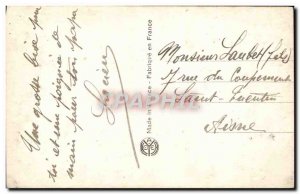 Une grosse bise pour
toi et une poignée de
main pour ton papa
Made in France - Fabriqué en France
Monsieur
7 rue du
Saint-Quentin
Aisne
CARTHAPOLIS